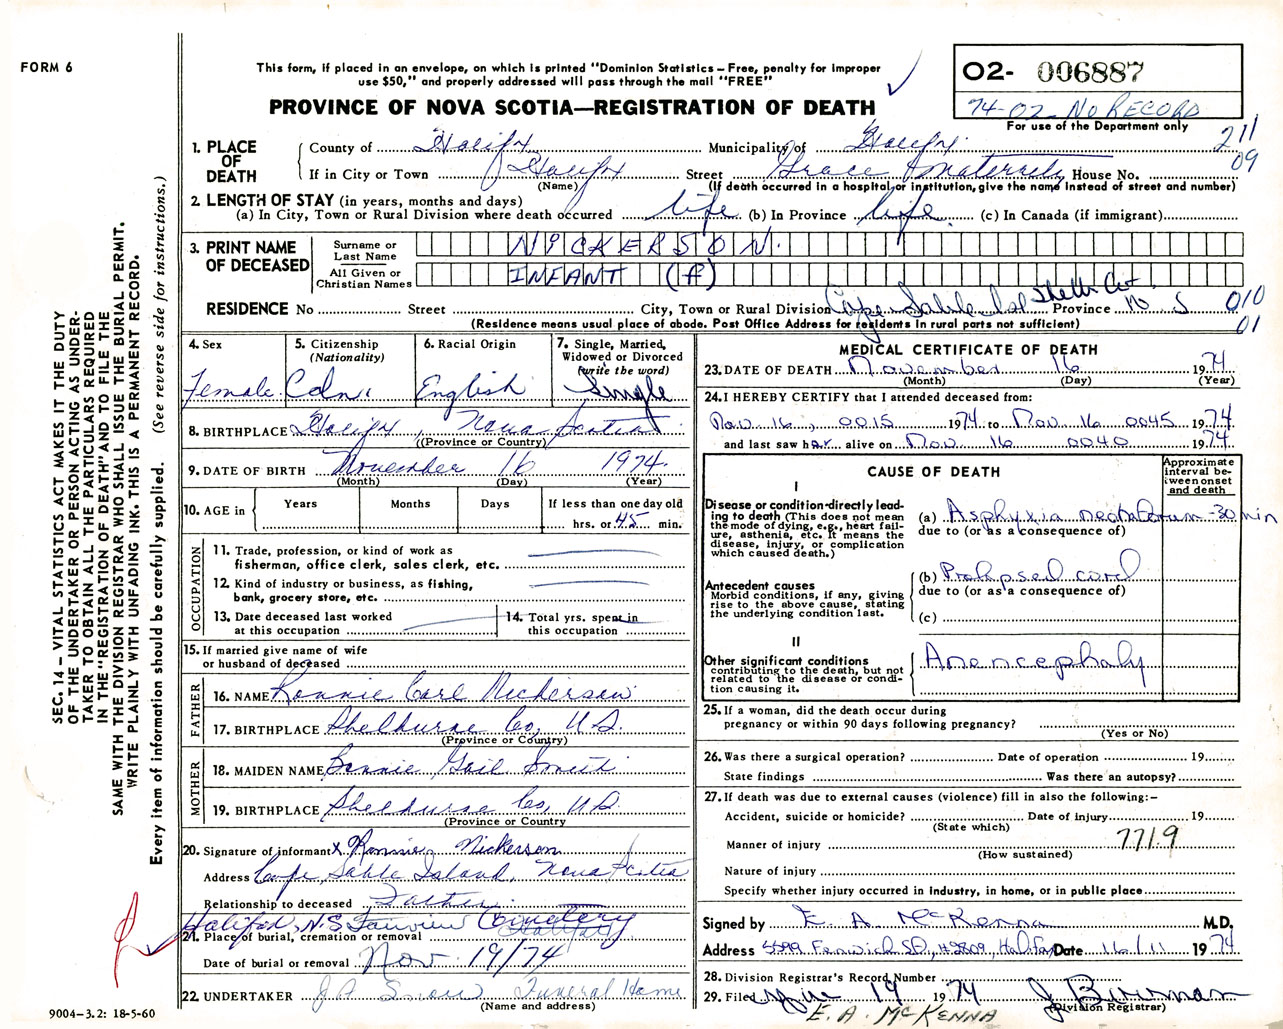 FORM 6
This form, if placed in an envelope, on which is printed "Dominion Statistics – Free, penalty for improper
use $50," and properly addressed will pass through the mail "FREE"
PROVINCE OF NOVA SCOTIA—REGISTRATION OF DEATH
02- 006887
74-02- No RECORD
For use of the Department only
211
09
1. PLACE OF DEATH
County of Halifx Municipality of Halifx
If in City or Town Halifx Street Grace Maternity House No.
(Name) (If death occurred in a hospital or institution, give the name instead of street and number)
2. LENGTH OF STAY (in years, months and days)
(a) In City, Town or Rural Division where death occurred life (b) In Province life (c) In Canada (if immigrant)
3. PRINT NAME OF DECEASED
Surname or Last Name NICKERSON
All Given or Christian Names INFANT (f)
RESIDENCE No Street City, Town or Rural Division Cape Sable Isl Province N S
010
01
(Residence means usual place of abode. Post Office Address for residents in rural parts not sufficient)
4. Sex
Female
5. Citizenship
(Nationality)
Cdn.
6. Racial Origin
English
7. Single, Married,
Widowed or Divorced
(write the word)
Single
8. BIRTHPLACE Halifx, Nova Scotia
(Province or Country)
9. DATE OF BIRTH November 16 1974
(Month) (Day) (Year)
10. AGE in
Years Months Days If less than one day old
hrs. or 45 min.
OCCUPATION
11. Trade, profession, or kind of work as
fisherman, office clerk, sales clerk, etc.
12. Kind of industry or business, as fishing,
bank, grocery store, etc.
13. Date deceased last worked
at this occupation
14. Total yrs. spent in
this occupation
15. If married give name of wife
or husband of deceased
FATHER
16. NAME Ronnie Carl Nickerson
17. BIRTHPLACE Shelburne Co, N.S.
(Province or Country)
MOTHER
18. MAIDEN NAME Bonnie Gail Smith
19. BIRTHPLACE Shelburne Co, N.S.
(Province or Country
20. Signature of informant x Ronnie Nickerson
Address Cape Sable Island, Nova Scotia
Relationship to deceased Father
Halifax, N.S Fairview Cemetery
21. Place of burial, cremation or removal Halifax
Date of burial or removal Nov 19/74
22. UNDERTAKER J A Snow Funeral Home
(Name and address)
MEDICAL CERTIFICATE OF DEATH
23. DATE OF DEATH November 16 1974
(Month) (Day) (Year)
24. I HEREBY CERTIFY that I attended deceased from:
Nov 16, 0015 1974 to Nov 16 0045 1974
and last saw her alive on Nov 16 0040 1974
CAUSE OF DEATH
Approximate
interval be-
tween onset
and death
I
Disease or condition directly lead-
ing to death (This does not mean
the mode of dying, e.g., heart fail-
ure, asthenia, etc. It means the
disease, injury, or complication
which caused death.)
(a) Asphyxia neonatorum 30 min
due to (or as a consequence of)
Antecedent causes
Morbid conditions, if any, giving
rise to the above cause, stating
the underlying condition last.
(b) Prolapsed cord
due to (or as a consequence of)
(c)
II
Other significant conditions
contributing to the death, but not
related to the disease or condi-
tion causing it.
Anencephaly
25. If a woman, did the death occur during
pregnancy or within 90 days following pregnancy?
(Yes or No)
26. Was there a surgical operation? Date of operation 19
State findings Was there an autopsy?
27. If death was due to external causes (violence) fill in also the following:–
Accident, suicide or homicide? Date of injury 19
(State which)
7719
Manner of injury
(How sustained)
Nature of injury
Specify whether injury occurred in industry, in home, or in public place
Signed by E. A. McKenna M.D.
Address 5599 Fenwick St, #2809, Halifax Date 16/11 1974
28. Division Registrar's Record Number
29. Filed 19 1974
(Division Registrar)
E. A. McKENNA
SEC. 14 – VITAL STATISTICS ACT MAKES IT THE DUTY
OF THE UNDERTAKER OR PERSON ACTING AS UNDER-
TAKER TO OBTAIN ALL THE PARTICULARS REQUIRED
IN THE "REGISTRATION OF DEATH" AND TO FILE THE
SAME WITH THE DIVISION REGISTRAR WHO SHALL ISSUE THE BURIAL PERMIT.
WRITE PLAINLY WITH UNFADING INK. THIS IS A PERMANENT RECORD.
Every item of information should be carefully supplied. (See reverse side for instructions.)
9004–3.2: 18-5-60